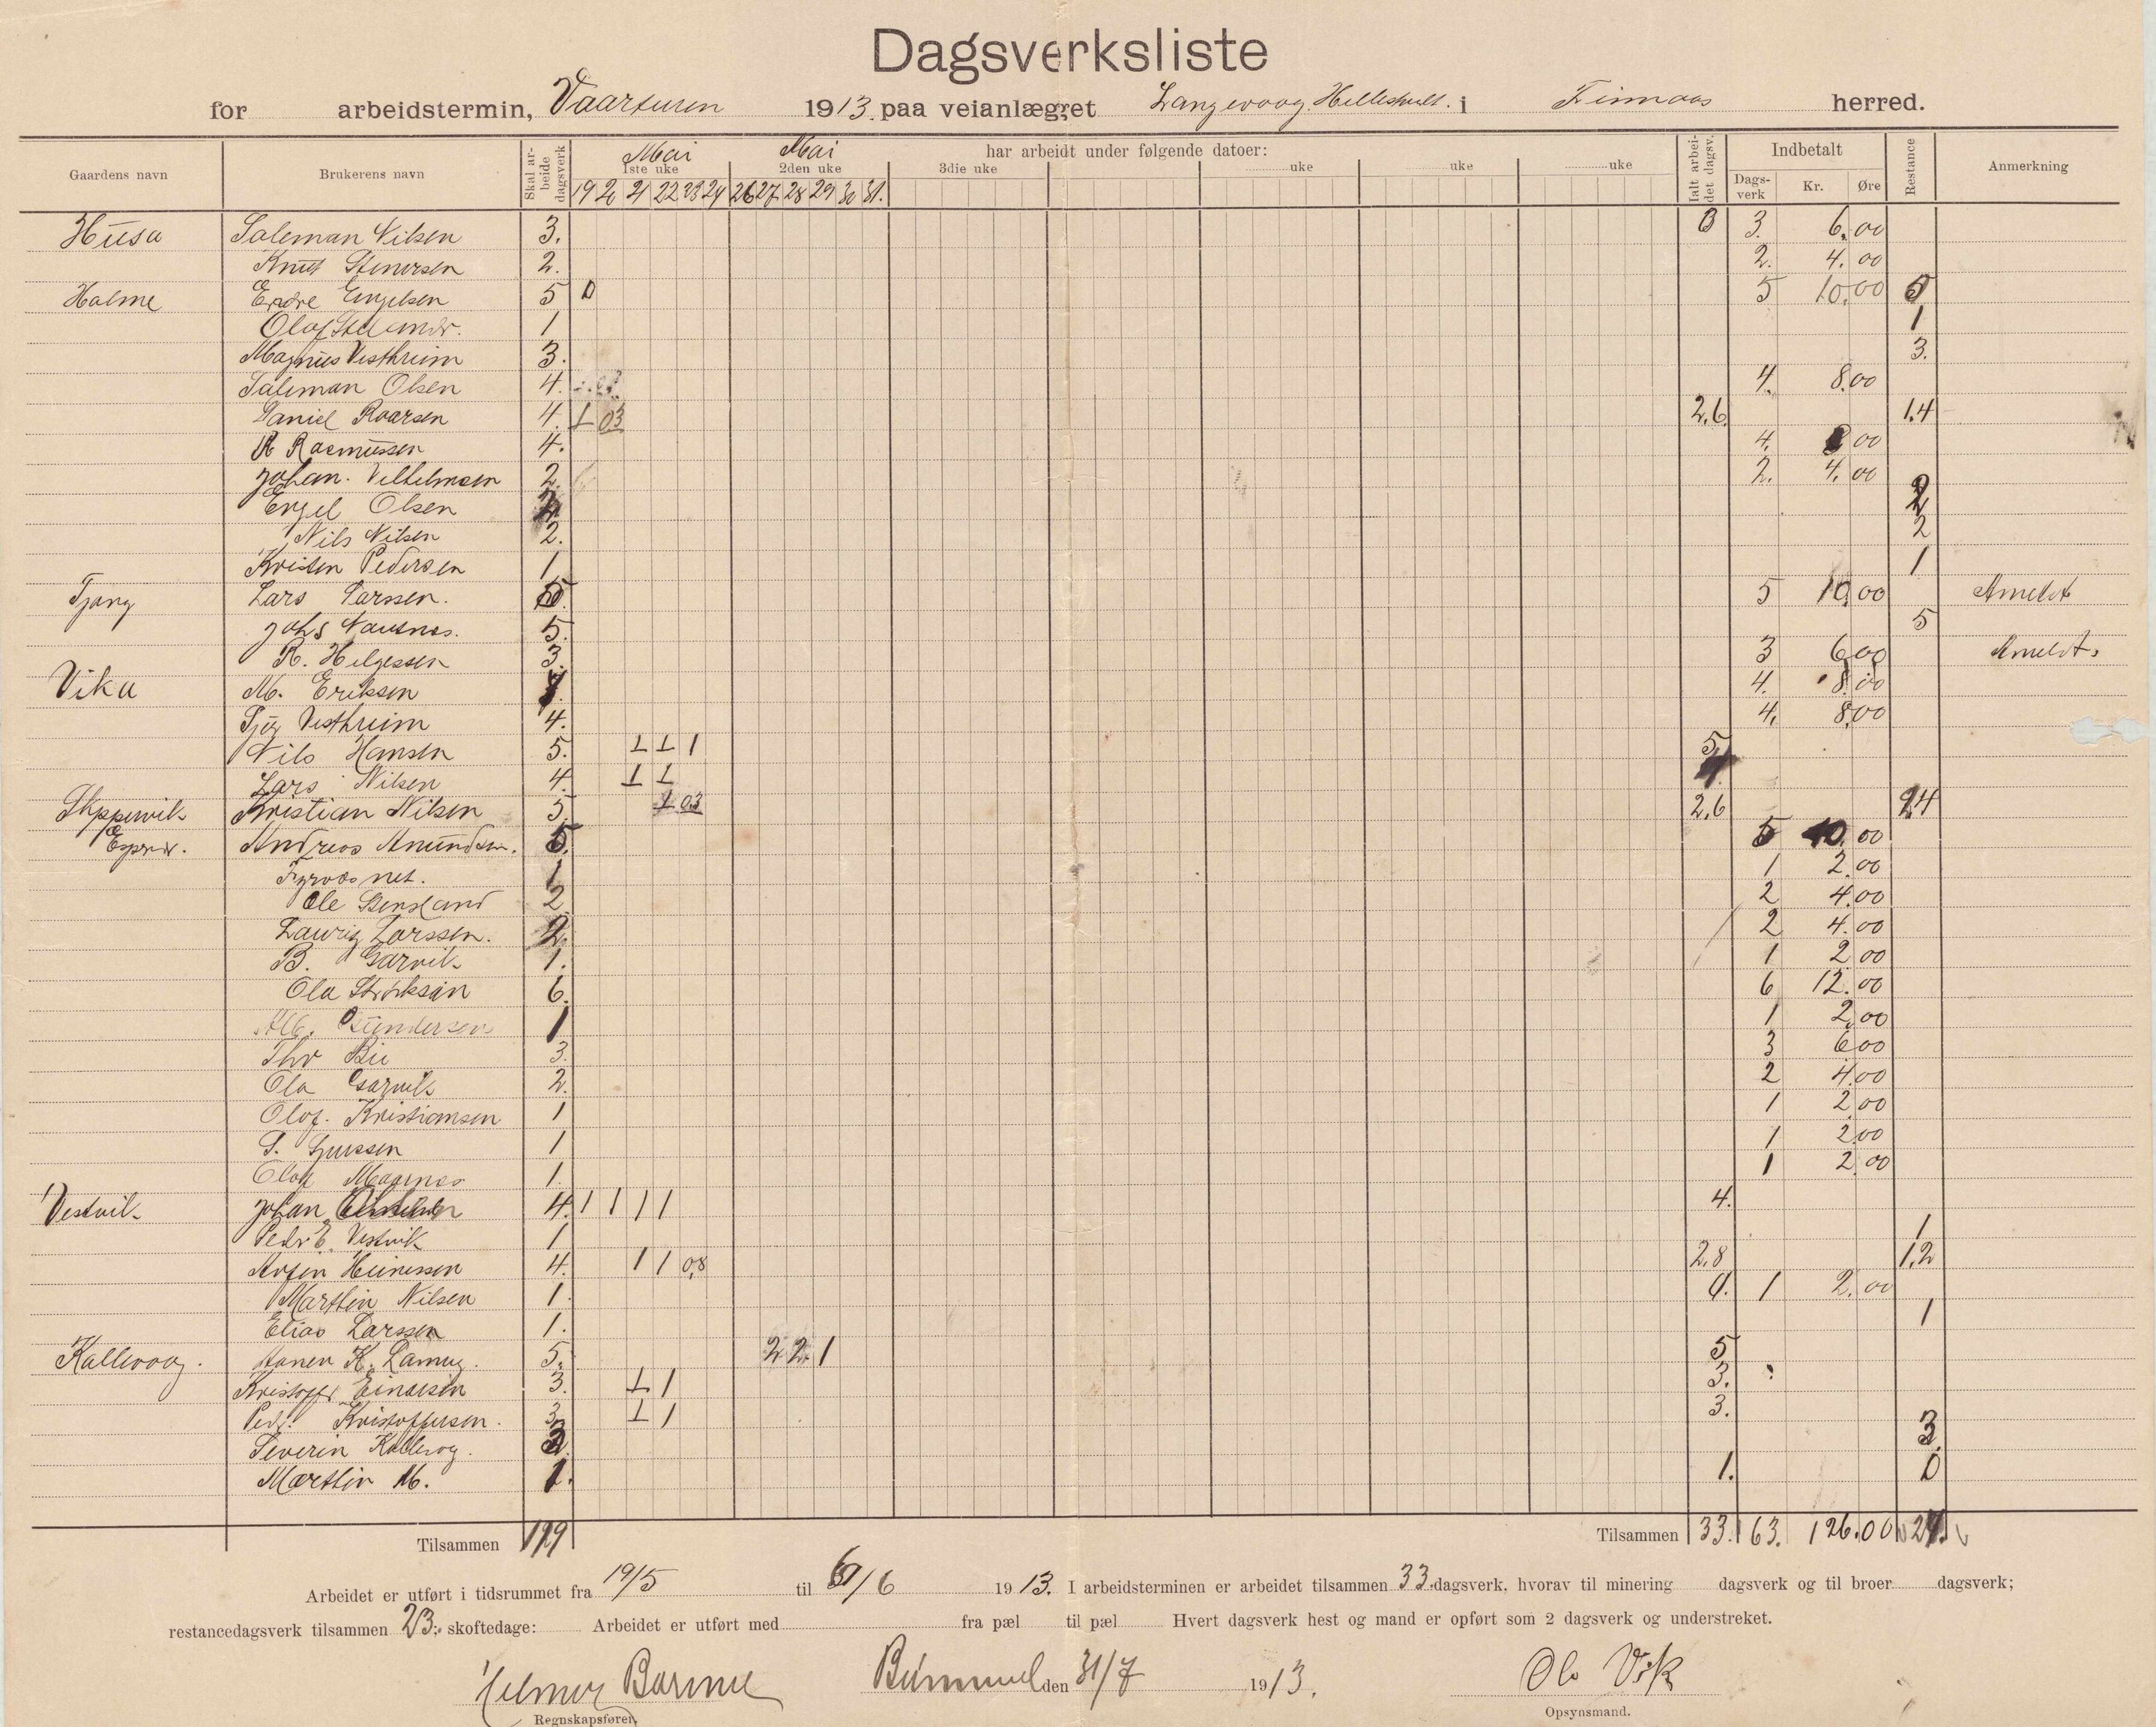 Dagsverksliste
for arbeidstermin, Vaarturen 1913. paa veianlægget Langevaag. Helleshult. i Finnaas herred.
Gaardens navn Brukerens navn Skal arbeide dagsverk har arbeidt under følgende datoer: Ialt arbeidet dagsv. Indbetalt Restance Anmerkning
Mai Mai
1ste uke 2den uke 3die uke uke uke uke Dagsverk Kr. Øre
19 20 21 22 23 24 26 27 28 29 30 31.
Husa Saleman Nilsen 3. 0 3. 6,00
Knut Stenersen 2. 2. 4.00
Halme Endre Engelsen 5 0 5 10,00 5
Olaf 1 1
Magnus Vestheim 3. 3.
Saleman Olsen 4. 4. 8.00
Daniel Roarsen 4. 1 03 2,6 1.4
R Rasmussen 4. 4. 8 00
Johan. Vilhelmsen 2. 2. 4,00
Engel Olsen 2 2
Nils Nilsen 2. 2
Kristen Pedersen 1 1
Tjong Lars Larssen. 5. 5 10,00 Anmeldt
Johs Nausnes. 5. 5
R. Helgessen 3. 3 6,00 Anmeldt.
Vika M. Eriksen 4. 8.00
Sjur Vestheim 4. 4. 8,00
Nils Hansen 5. 1 1 1 5
Lars Nilsen 4. 1 1 4
Kristian Nilsen 5. 1 03 2,6 2,4
Andreas Amundsen. 5. 5 10.00
net. 1 1 2.00
Ole 2 2 4.00
Lauriz Larssen. 2. 2 4.00
B. Garvik 1. 1 2.00
Ola 6. 6 12.00
Gundersen 1 1 2,00
Thv Bie 3. 3 6.00
Ola Garvik 2. 2 4.00
Olaf. Kristiansen 1 1 2,00
S. 1 1 2.00
Olaf 1. 1 2.00
Vestvik Johan 4. 1 1 1 1 4.
Peder E. Vestvik 1 1
Heinessen 4. 1 1 0,8 2,8 1,2
Marthin Nilsen 1. 0. 1 2.00
Elias Larssen 1. 1
Kallevaag. K. 5. 2 2 1 5
Kristoffer Einarsen 3. 1 1 3.
Peder Kristoffersen. 3. 1 1 3.
Severin Kallevog. 3. 3.
Marthin M. 1. 1. 0
Tilsammen 119 Tilsammen 33. 63. 126.00
Arbeidet er utført i tidsrummet fra 19/5 til /6 1913. I arbeidsterminen er arbeidet tilsammen 33. dagsverk, hvorav til minering dagsverk og til broer dagsverk;
restancedagsverk tilsammen 23. skoftedage: Arbeidet er utført med fra pæl til pæl Hvert dagsverk hest og mand er opført som 2 dagsverk og understreket.
Bømmel den 31/7 1913. Ola Vik
Regnskapsfører. Opsynsmand.